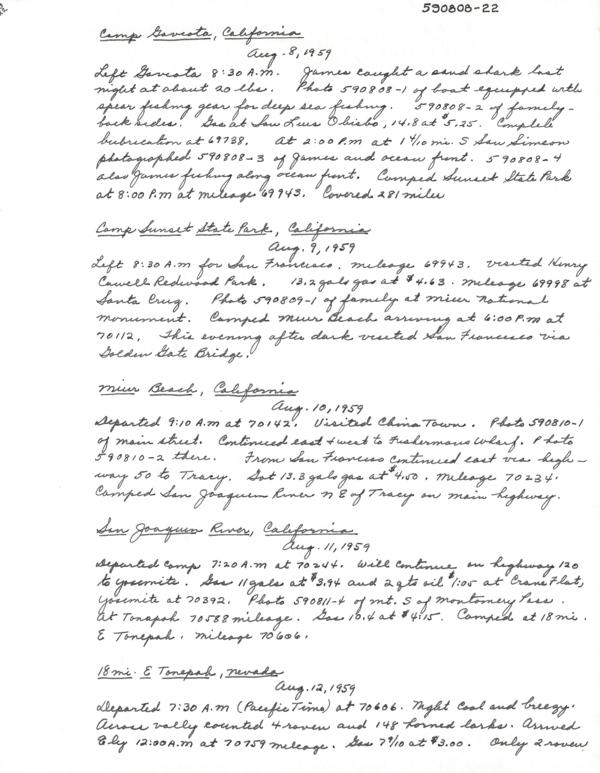 590808-22
Camp Gaviota, California
Aug. 8, 1959
Left Gaviota 8:30 A.M. James caught a sand shark last
night at about 20 lbs. Photo 590808-1 of boat equipped with
spear fishing gear for deep sea fishing. 590808-2 of family -
back sides. Gas at San Luis Obisbo, 14.8 at $5.25. Complete
lubrication at 69788. At 2:00 P.M at 1 4/10 mi. S San Simeon
photographed 590808-3 of James and ocean front. 590808-4
also James fishing along ocean front. Camped Sunset State Park
at 8:00 P.M at mileage 69943. Covered 281 miles
Camp Sunset State Park, California
Aug. 9, 1959
Left 8:30 A.M for San Francisco. mileage 69943. visited Henry
Cowell Redwood Park. 13.2 gals gas at $4.63. mileage 69998 at
Santa Cruz. Photo 590809-1 of family at Miur National
monument. Camped Miur Beach arriving at 6:00 P.M at
70112. This evening after dark visited San Francisco via
Golden Gate Bridge.
Miur Beach, California
Aug. 10, 1959
Departed 9:10 A.M at 70142. Visited China Town. Photo 590810-1
of main street. Continued east & west to Fishermans Wharf. Photo
590810-2 there. From San Francisco continued east via high-
way 50 to Tracy. Got 13.3 gals gas at $4.50. Mileage 70234.
Camped San Joaquin River N E of Tracy on main highway.
San Joaquin River, California
Aug. 11, 1959
Departed camp 7:20 A.M at 70244. Will continue on highway 120
to Yosemite. Gas 11 gals at $3.94 and 2 qts oil $1.05 at Crane Flat,
Yosemite at 70392. Photo 590811-4 of mt. S of Montomery Pass.
At Tonapah 70588 mileage. Gas 10.4 at $4.15. Camped at 18 mi.
E Tonepah. Mileage 70606.
18 mi. E Tonepah, Nevada
Aug. 12, 1959
Departed 7:30 A.M (Pacific Time) at 70606. Night cool and breezy.
Across vally counted 4 raven and 148 horned larks. Arrived
Ely 12:00 A.M at 70759 mileage. Gas 7 9/10 at $3.00. Only 2 raven